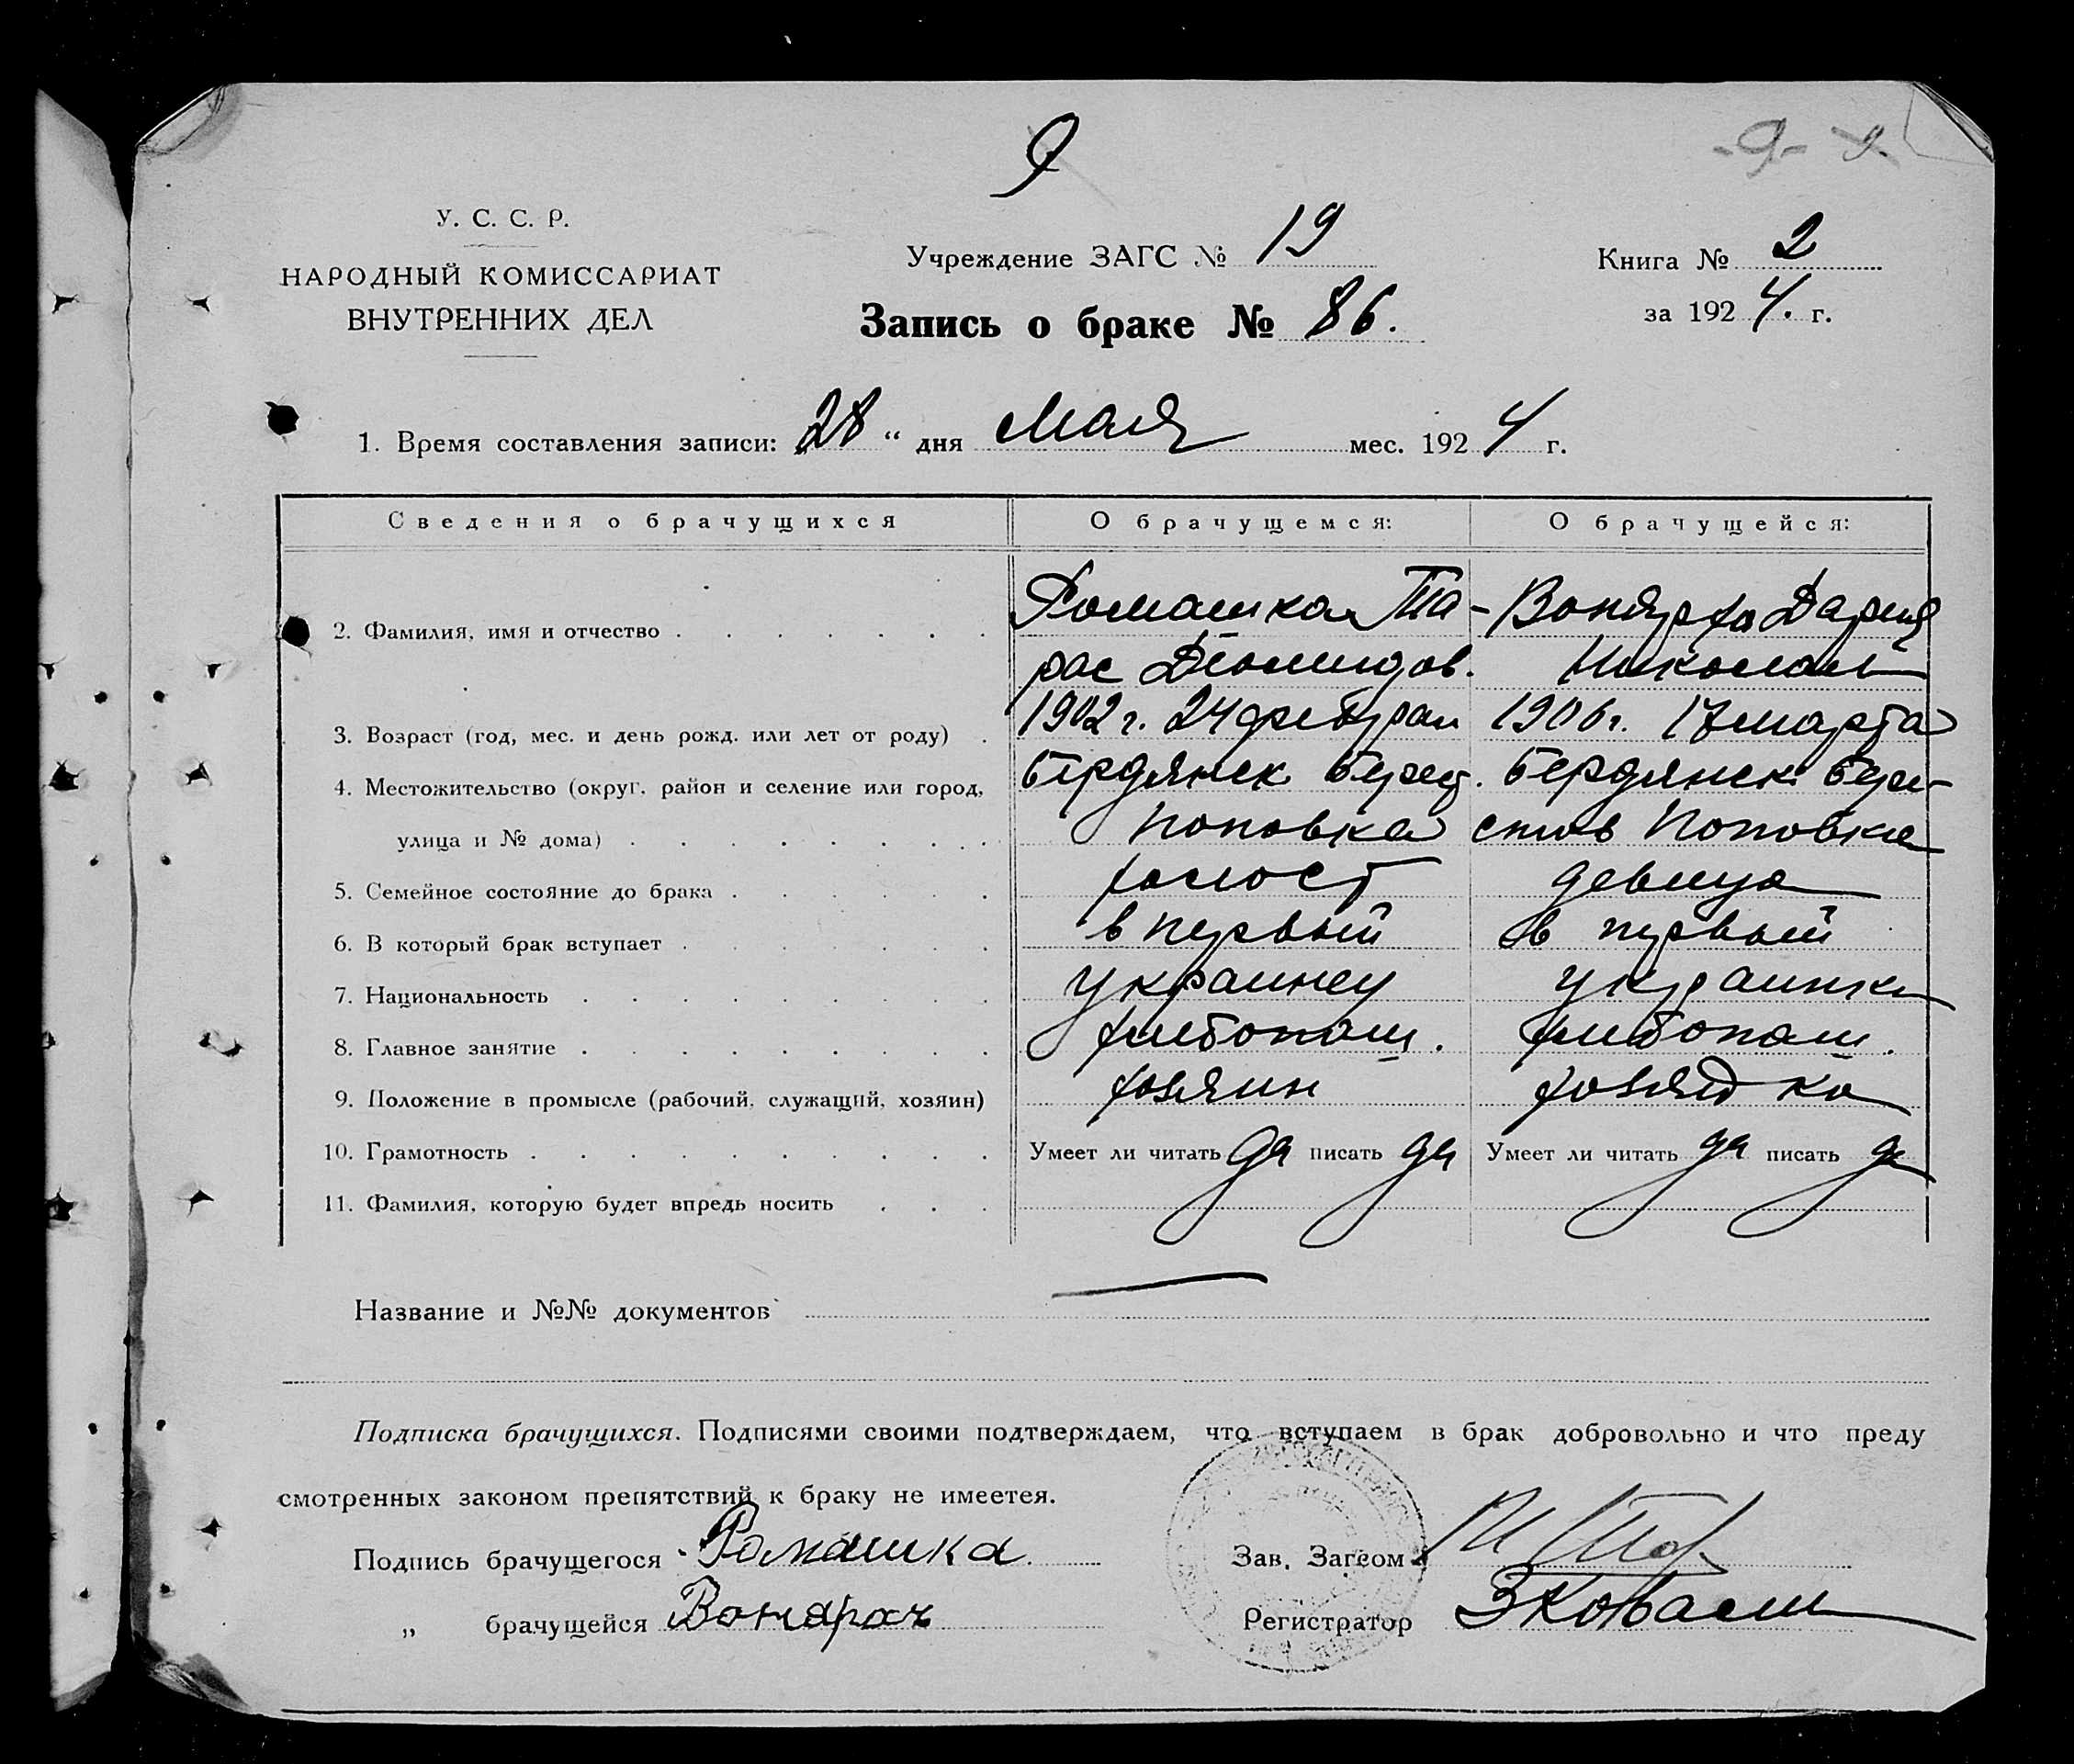 9
-9- 9.
У. С. С. Р.
НАРОДНЫЙ КОМИССАРИАТ
ВНУТРЕННИХ ДЕЛ
Учреждение ЗАГС № 19
Запись о браке № 86.
Книга № 2
за 1924. г.
1. Время составления записи: 28 “ дня Мая мес. 1924 г.
Сведения о брачущихся О брачущемся: О брачущейся:
2. Фамилия, имя и отчество Ромашка Та- Вонярха Дария
рас Диомидов. Николаев
3. Возраст (год, мес. и день рожд. или лет от роду) 1902 г. 24 феврал 1906 г. 17 марта
4. Местожительство (округ, район и селение или город, Бердянск Берест. Бердянск Бере-
улица и № дома) Поповка стов Поповка
5. Семейное состояние до брака холост девица
6. В который брак вступает в первый в первый
7. Национальность украинец украинка
8. Главное занятие хлебопаш. хлебопаш.
9. Положение в промысле (рабочий, служащий, хозяин) хозяин хозяйка
10. Грамотность Умеет ли читать да писать да Умеет ли читать да писать да
11. Фамилия, которую будет впредь носить
Название и №№ документов
Подписка брачущихся. Подписями своими подтверждаем, что вступаем в брак добровольно и что преду
смотренных законом препятствий к браку не имеетея.
Подпись брачущегося Ромашка.
„ брачущейся Вонярха
Зав. Загсом
Регистратор